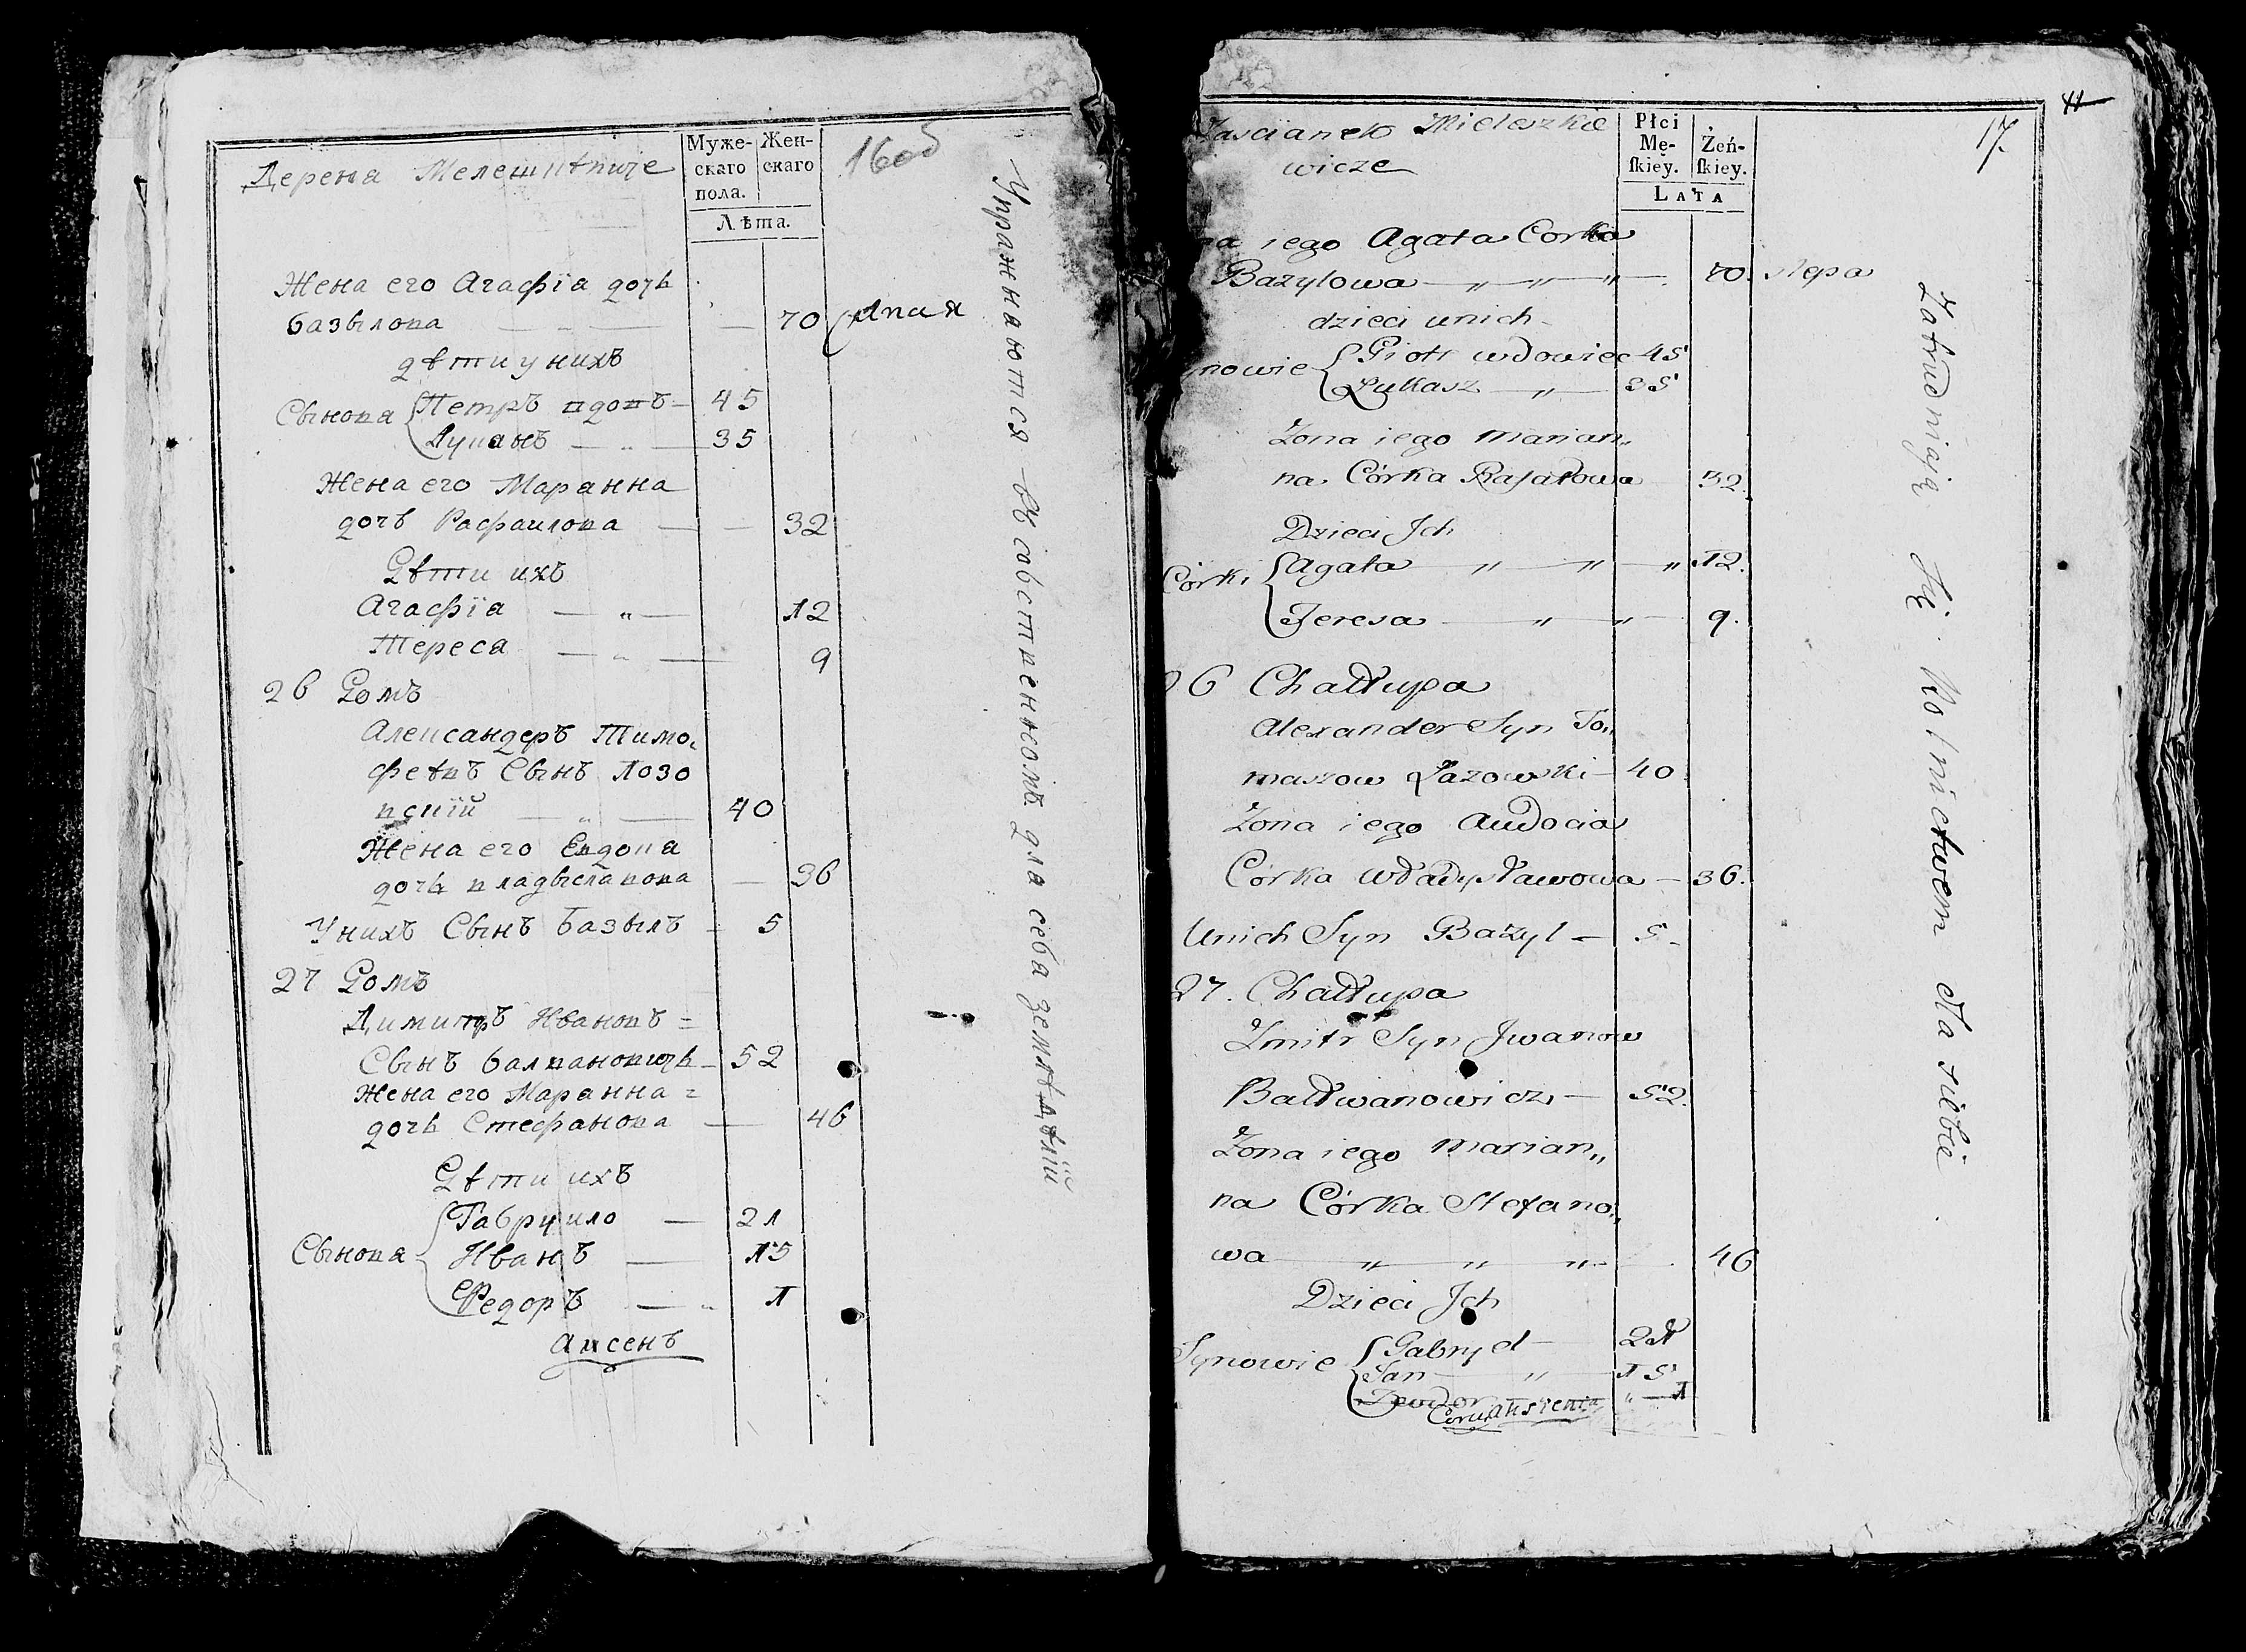 Дереня Мелешкѣвиче
Муже-
скаго
пола.
Жен-
скаго
Лѣта.
16 об
Жена его Агафїа дочь
базылова — „ — — 70 слпая
дѣти у нихъ
Сынова Петръ вдовъ — 45
Лукашъ — „ — 35
Жена его Маранна
дочъ Рафаилова — — 32
Дѣти ихъ
Агафїа — „ — 12
Тереса — „ — 9
26 Домъ
Александеръ Тимо„
феѣвъ Сынъ Лозо
вскїй — „ — 40
Жена его Евдокїа
дочь владыславова — 36
У нихъ Сынъ базылъ - 5
27 Домъ
Димитръ Ивановъ =
Сынъ балвановичь — 52
Жена его Маранна =
дочь Стефанова — 46
Дѣти ихъ
Сынова Гаврыило — 21
Иванъ — 15
Федоръ — „ 1
аксенъ
Упражнаютса въ собственномъ для себа земледѣлїи
Zascianek Mieleszkie
wicze
Płci
Mę-
ſkiey.
Żeń-
ſkiey.
LATA
17.
11
na iego Agata Corka
Bazylowa — „ — „ — „ — 70. ślepa
dzieci unich
nowie Piotr wdowiec 45
Łukasz — „ — 35
Zona iego Marian„
na Córka Rafałowa 32.
Dzieci Jch
Córki Agata — „ — „ — „ 12.
Teresa — „ — „ — 9.
26 Chałupa
Alexander Syn To„
maszow Łazowski — 40.
Zona iego Audocia
Córka Władysławowa — 36.
Unich Syn Bazyl — 5 -
27. Chałupa
Zmitr Syn Jwanow
Bałwanowicz — 52.
Zona iego Marian„
na Córka Stefano„
wa — „ — „ — „ 46
Dzieci Jch
Synowie Gabryel — 21
Jan — „ — 15
Teodor „ — 1
Corka Aksienia
Zatrudniaią się Rolnictwem dla siebie.